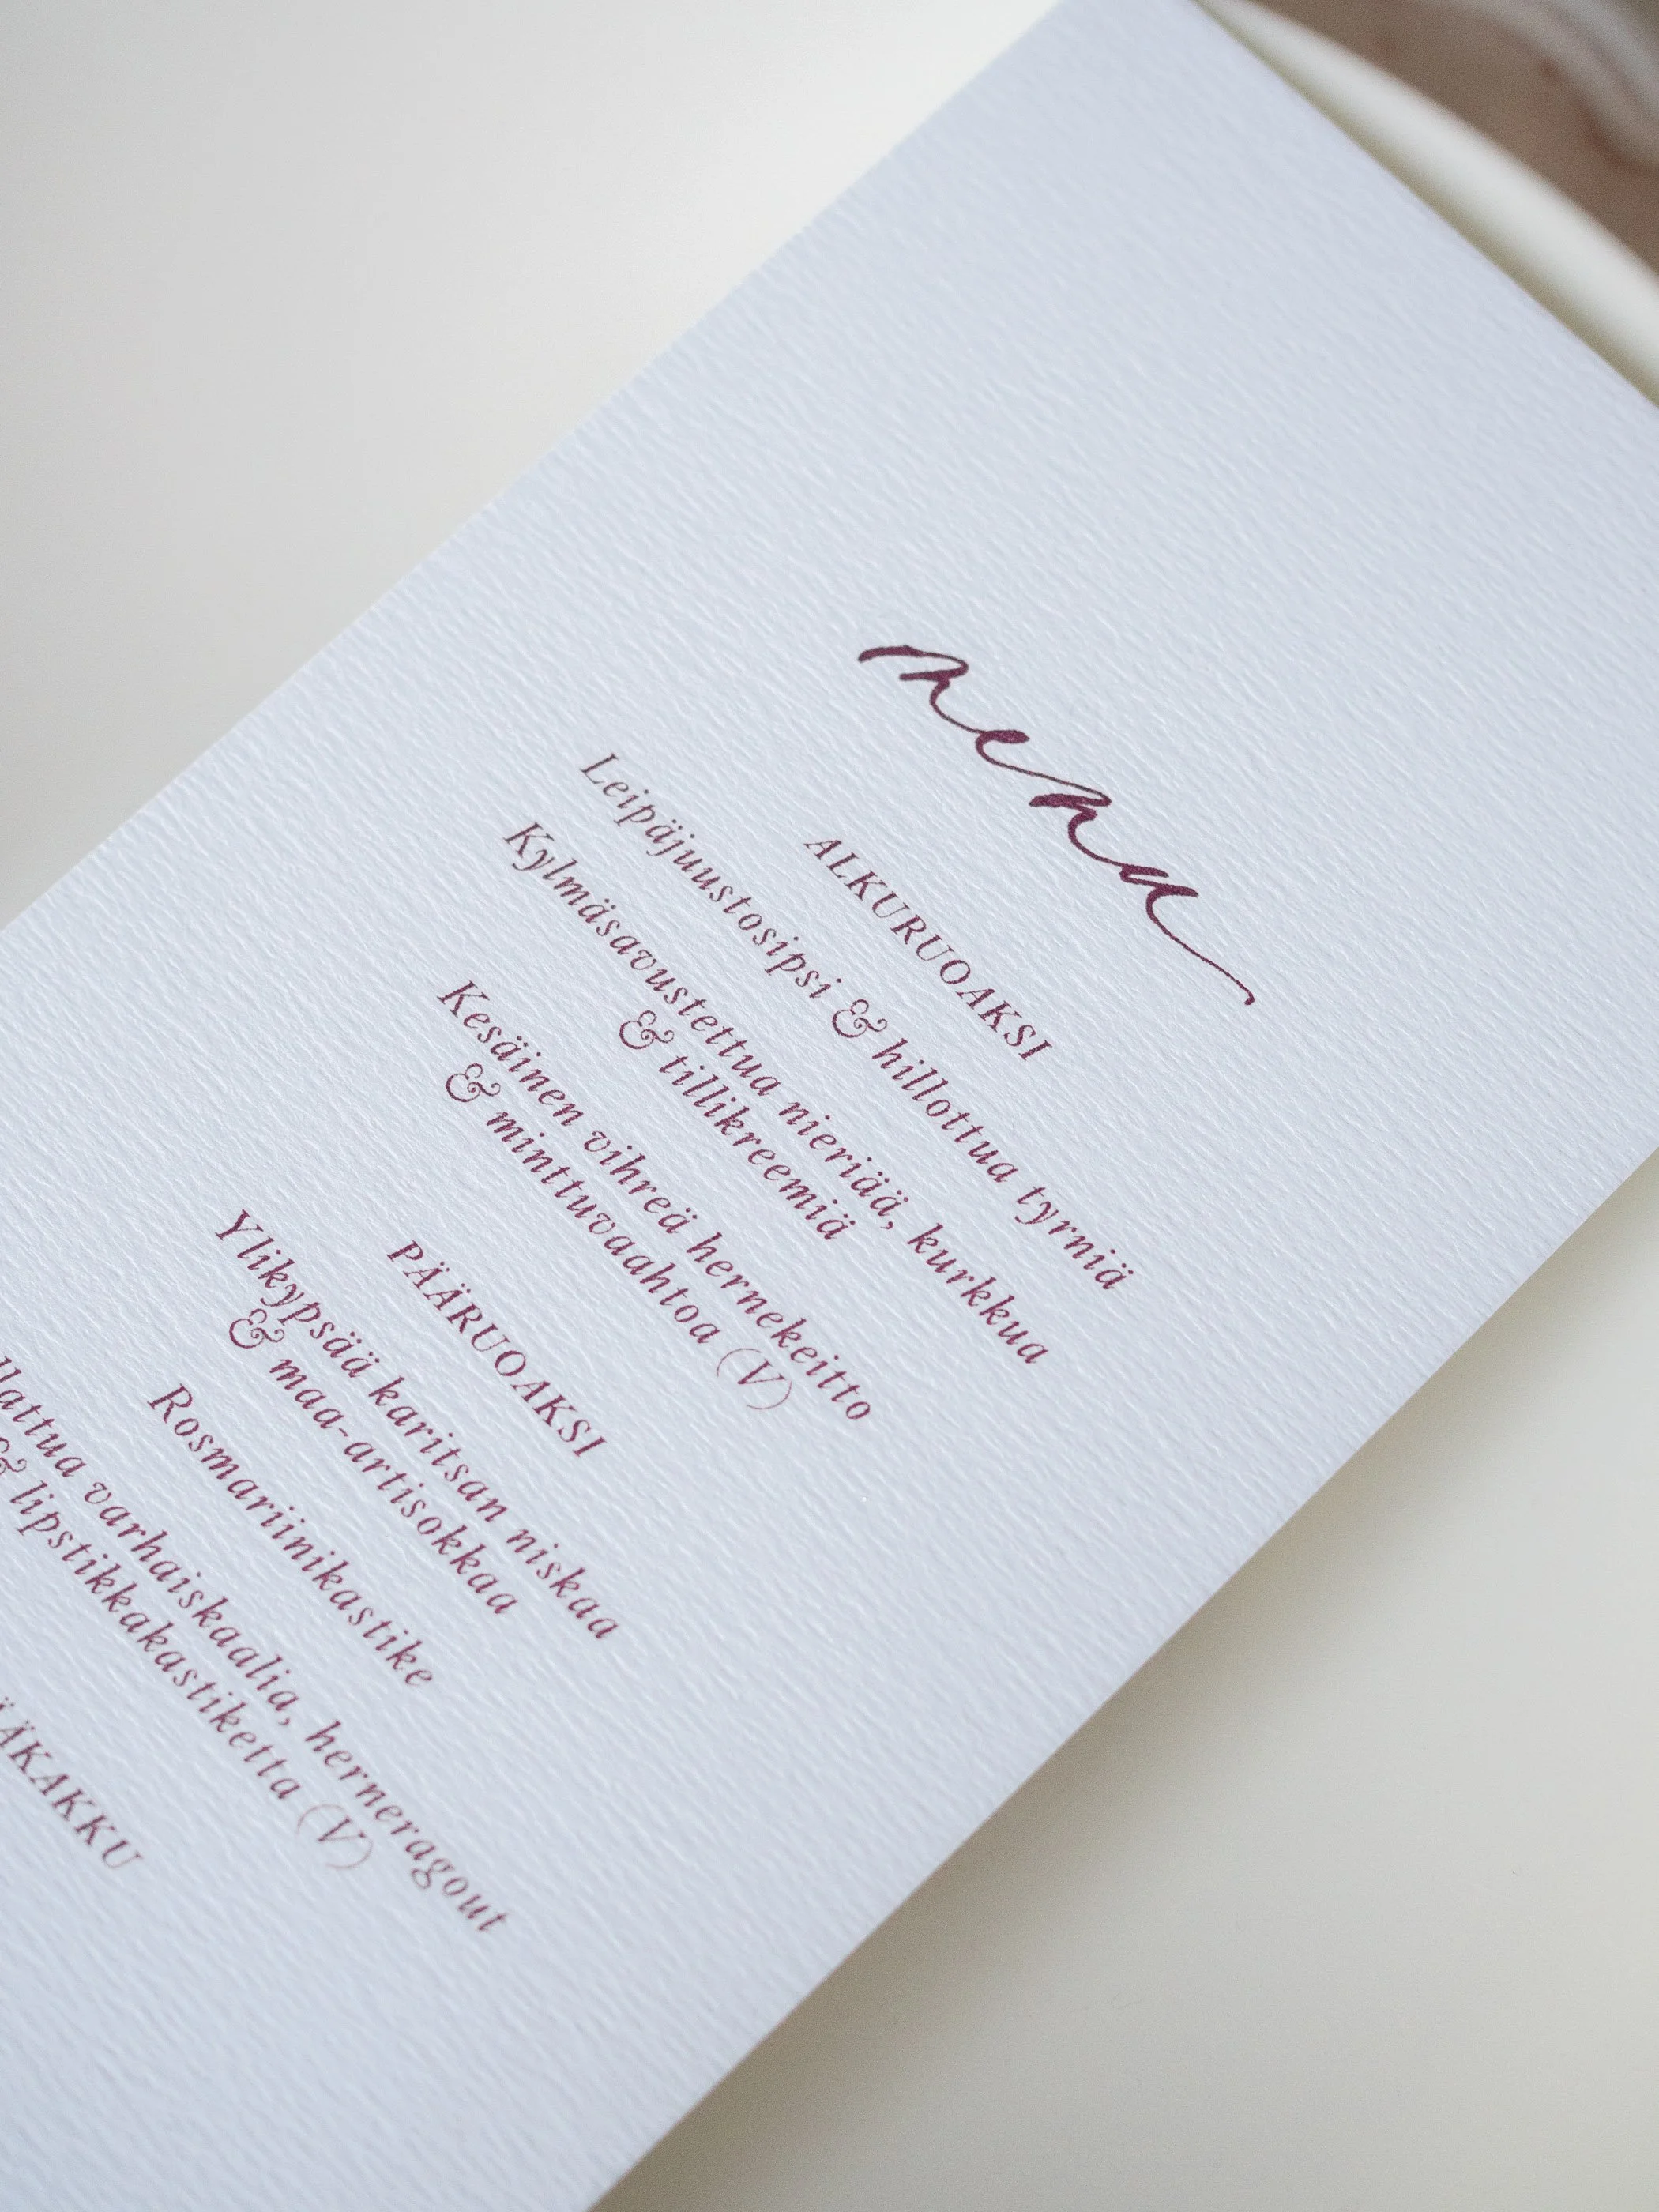 menu
ALKURUOAKSI
Leipäjuustosipsi & hillottua tyrniä
Kylmäsavustettua nieriää, kurkkua
& tillikreemiä
Kesäinen vihreä hernekeitto
& minttuvaahtoa (V)
PÄÄRUOAKSI
Ylikypsää karitsan niskaa
& maa-artisokkaa
Rosmariinikastike
varhaiskaalia, herneragout
& lipstikkakastiketta (V)